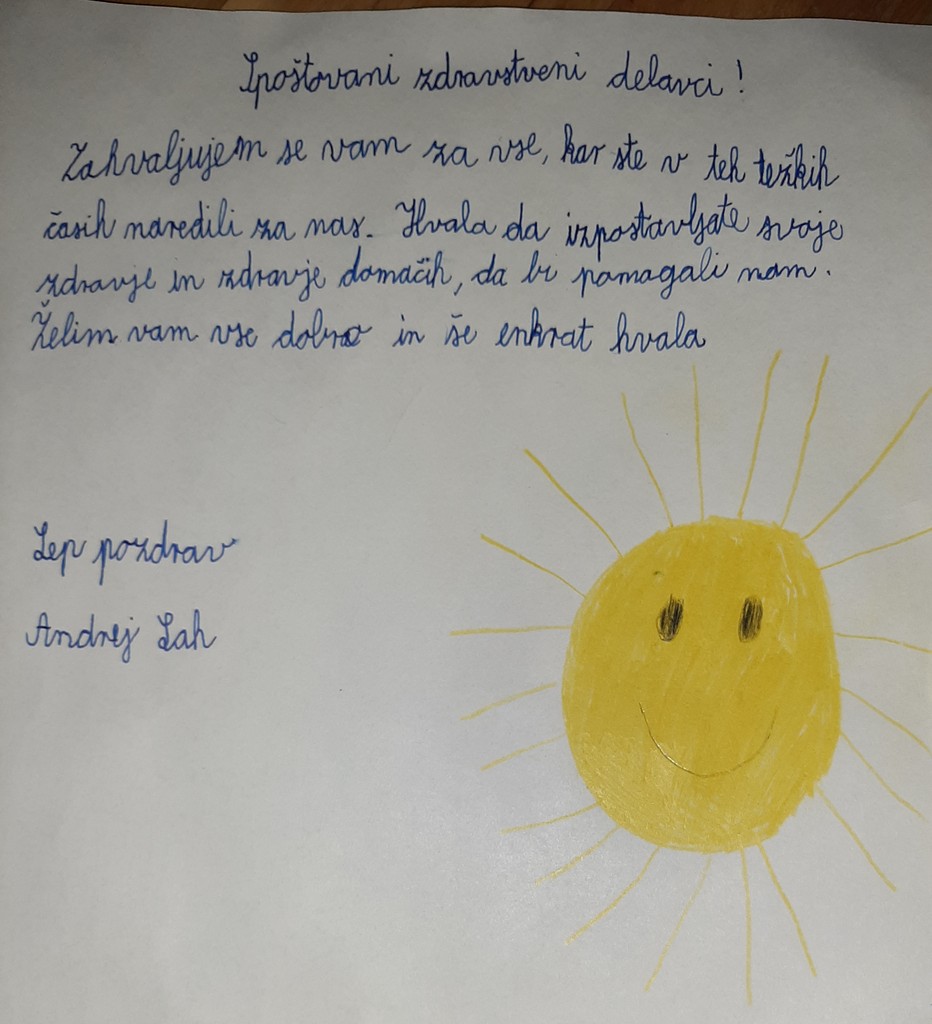 Spoštovani zdravstveni delavci!
Zahvaljujem se vam za vse, kar ste v teh težkih
časih naredili za nas. Hvala da izpostavljate svoje
zdravje in zdravje domačih, da bi pomagali nam.
Želim vam vse dobro in še enkrat hvala
Lep pozdrav
Andrej Lah